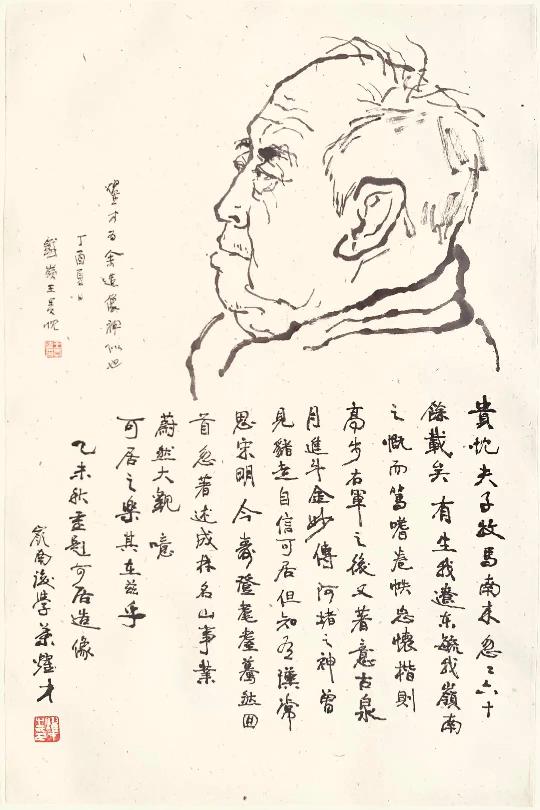 貴忱夫子牧馬南來忽〻六十
餘載矣有生我遼東毓我嶺南
之慨而篤嗜卷帙忠懷楷則
高步右軍之後又著意古泉
月進斗金妙傳阿堵之神曾
見豬走自信可居但知馬漢常
思宋明今壽登耄耋驀然回
首忽著述成林名山事業
蔚然大觀噫
可居之樂其在茲乎
乙未秋畫題可居造像
嶺南後學葉燿才
燿才為余造像神似也
丁酉夏日
鐵嶺王貴忱